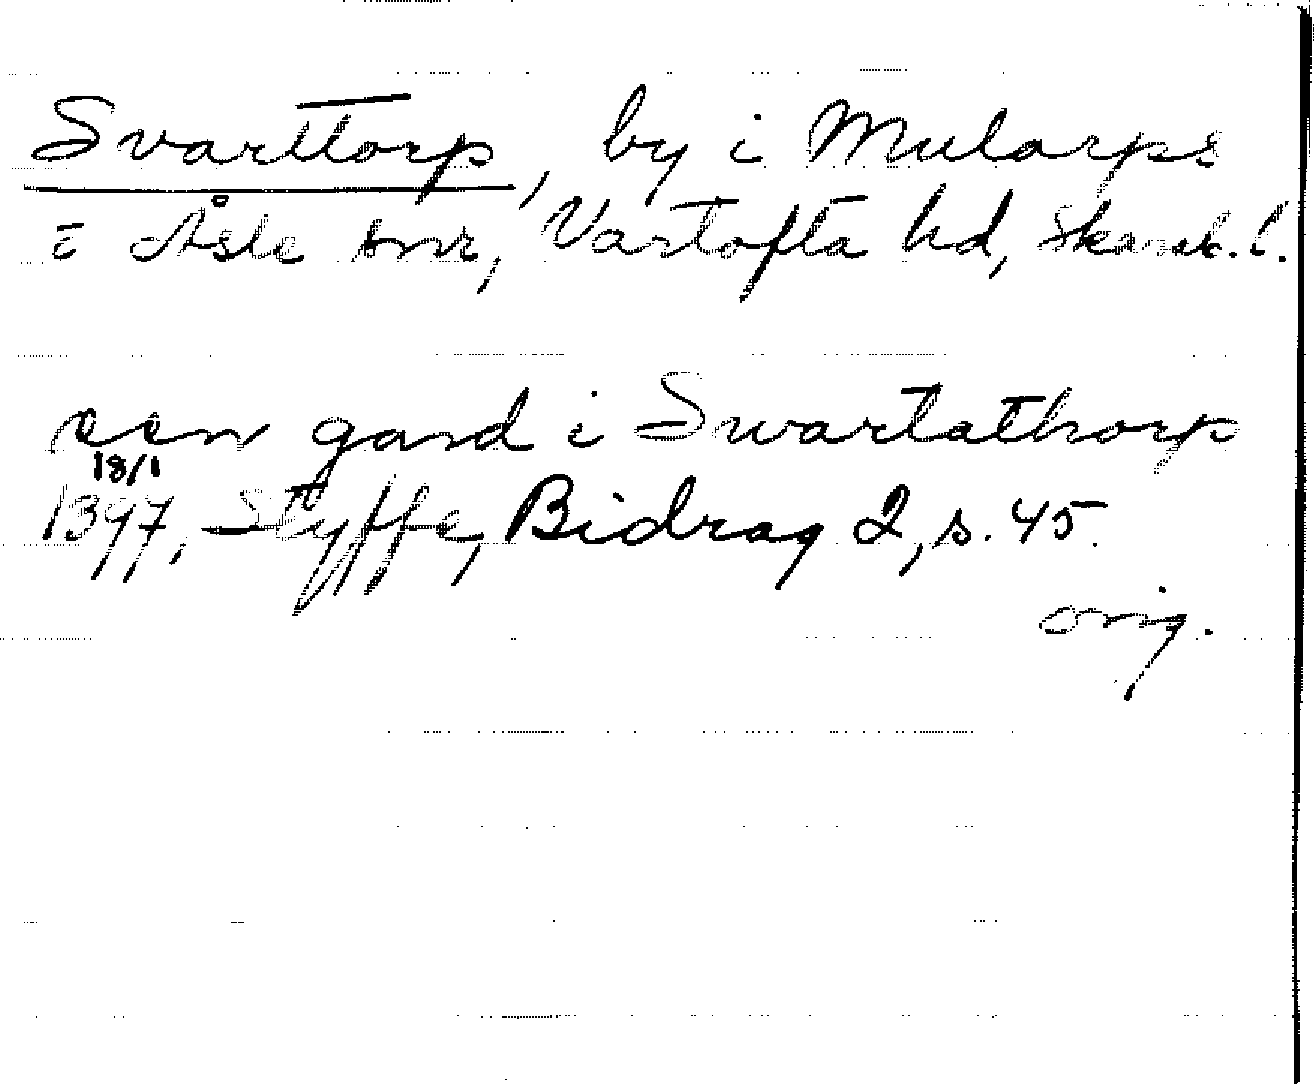 Svarttorp, by i Mularps
i Åsle snr, Vartofta hd, Skarab. l.
een gard i Swartathorp
18/1
1397, Styffe, Bidrag 2, s. 45.
orig.